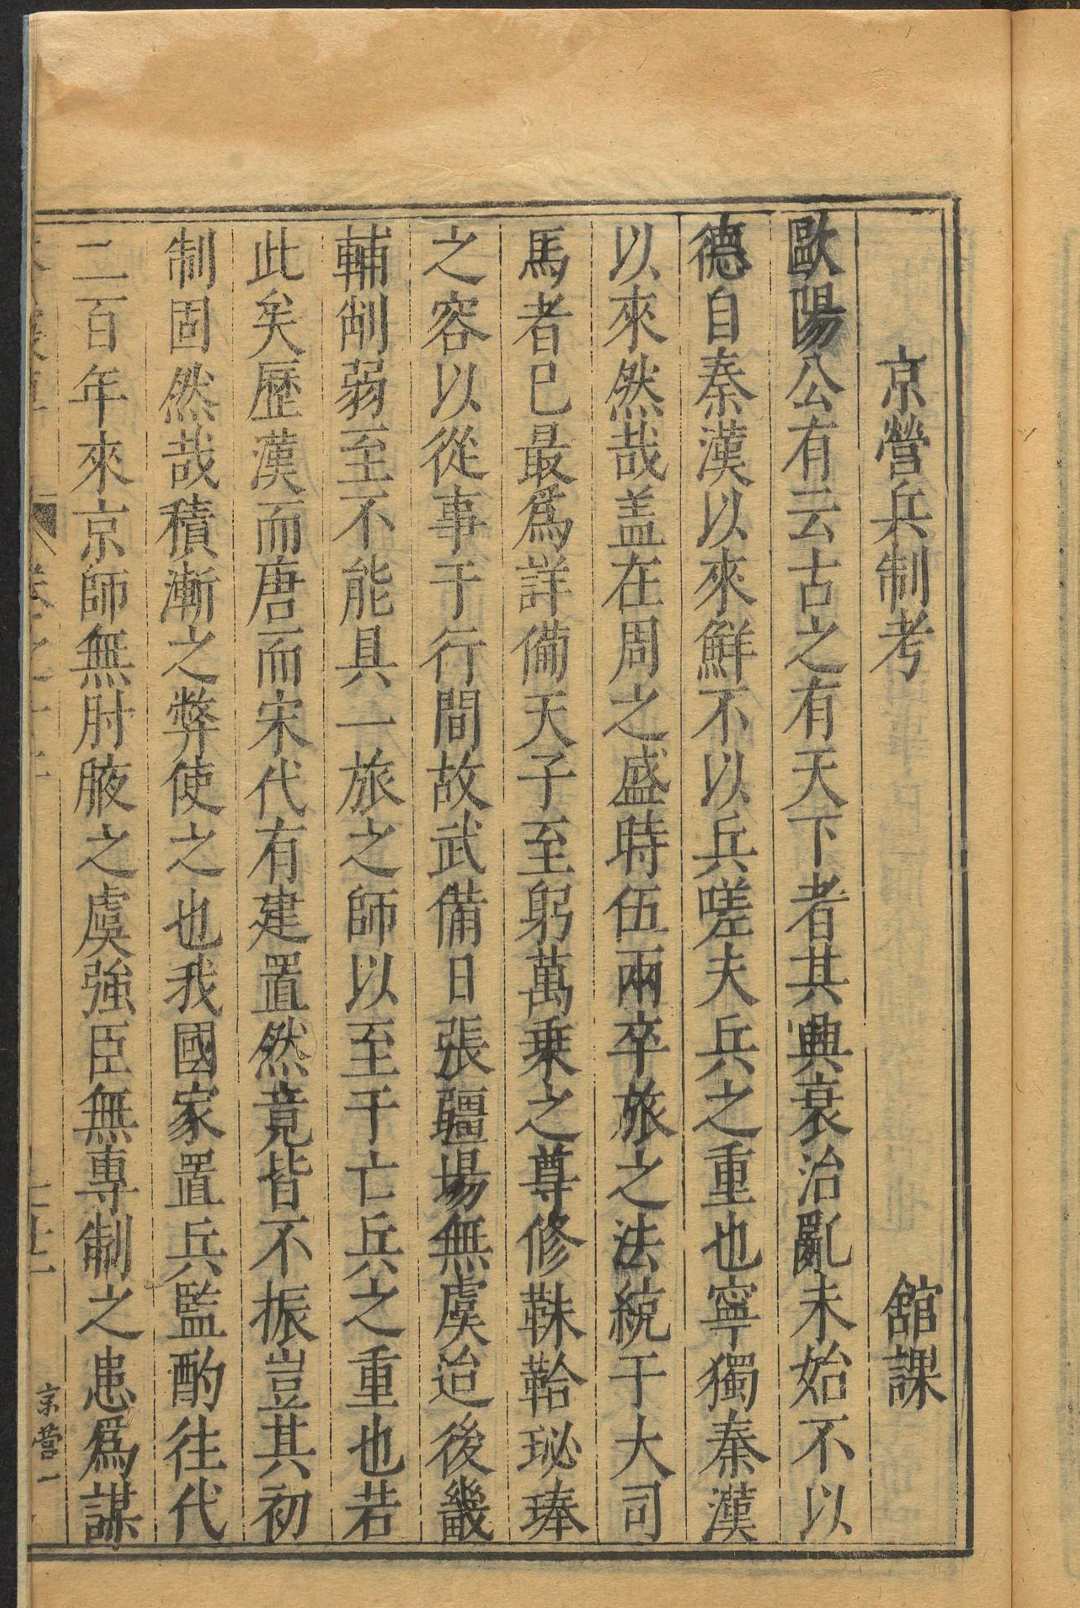 京營兵制考　館課
歐陽公有云古之有天下者其興衰治亂未始不以
德自秦漢以來鮮不以兵嗟夫兵之重也寧獨秦漢
以來然哉盖在周之盛時伍兩卒旅之法統于大司
馬者已最爲詳備天子至躬萬乗之尊修靺鞈珌琫
之容以從事于行間故武備日張疆場無虞迨後畿
輔削弱至不能具一旅之師以至于亡兵之重也若
此矣歷漢而唐而宋代有建置然竟皆不振豈其初
制固然哉積漸之弊使之也我國家置兵監酌往代
二百年來京師無肘腋之虞強臣無專制之患爲謀
卷之十
京營一